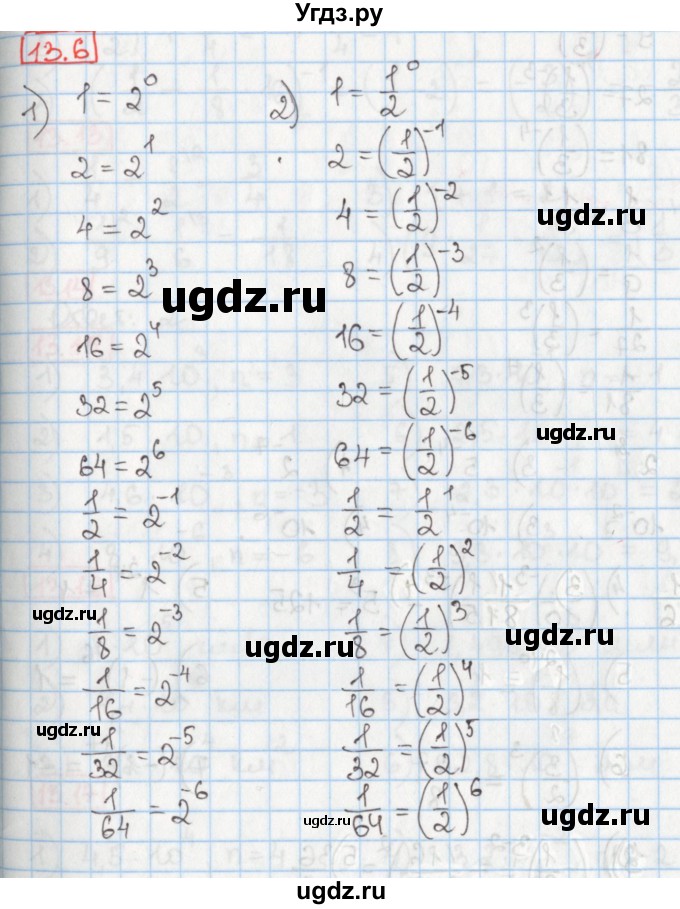 Угдз.ру
13.6
1) 1 = 2^0
2 = 2^1
4 = 2^2
8 = 2^3
16 = 2^4
32 = 2^5
64 = 2^6
1/2 = 2^-1
1/4 = 2^-2
1/8 = 2^-3
1/16 = 2^-4
1/32 = 2^-5
1/64 = 2^-6
2) 1 = 1/2^0
2 = (1/2)^-1
4 = (1/2)^-2
8 = (1/2)^-3
16 = (1/2)^-4
32 = (1/2)^-5
64 = (1/2)^-6
1/2 = 1/2^1
1/4 = (1/2)^2
1/8 = (1/2)^3
1/16 = (1/2)^4
1/32 = (1/2)^5
1/64 = (1/2)^6
ugdz.ru
ugdz.ru
ugdz.ru
ugdz.ru
ugdz.ru
ugdz.ru
ugdz.ru
ugdz.ru
ugdz.ru
ugdz.ru